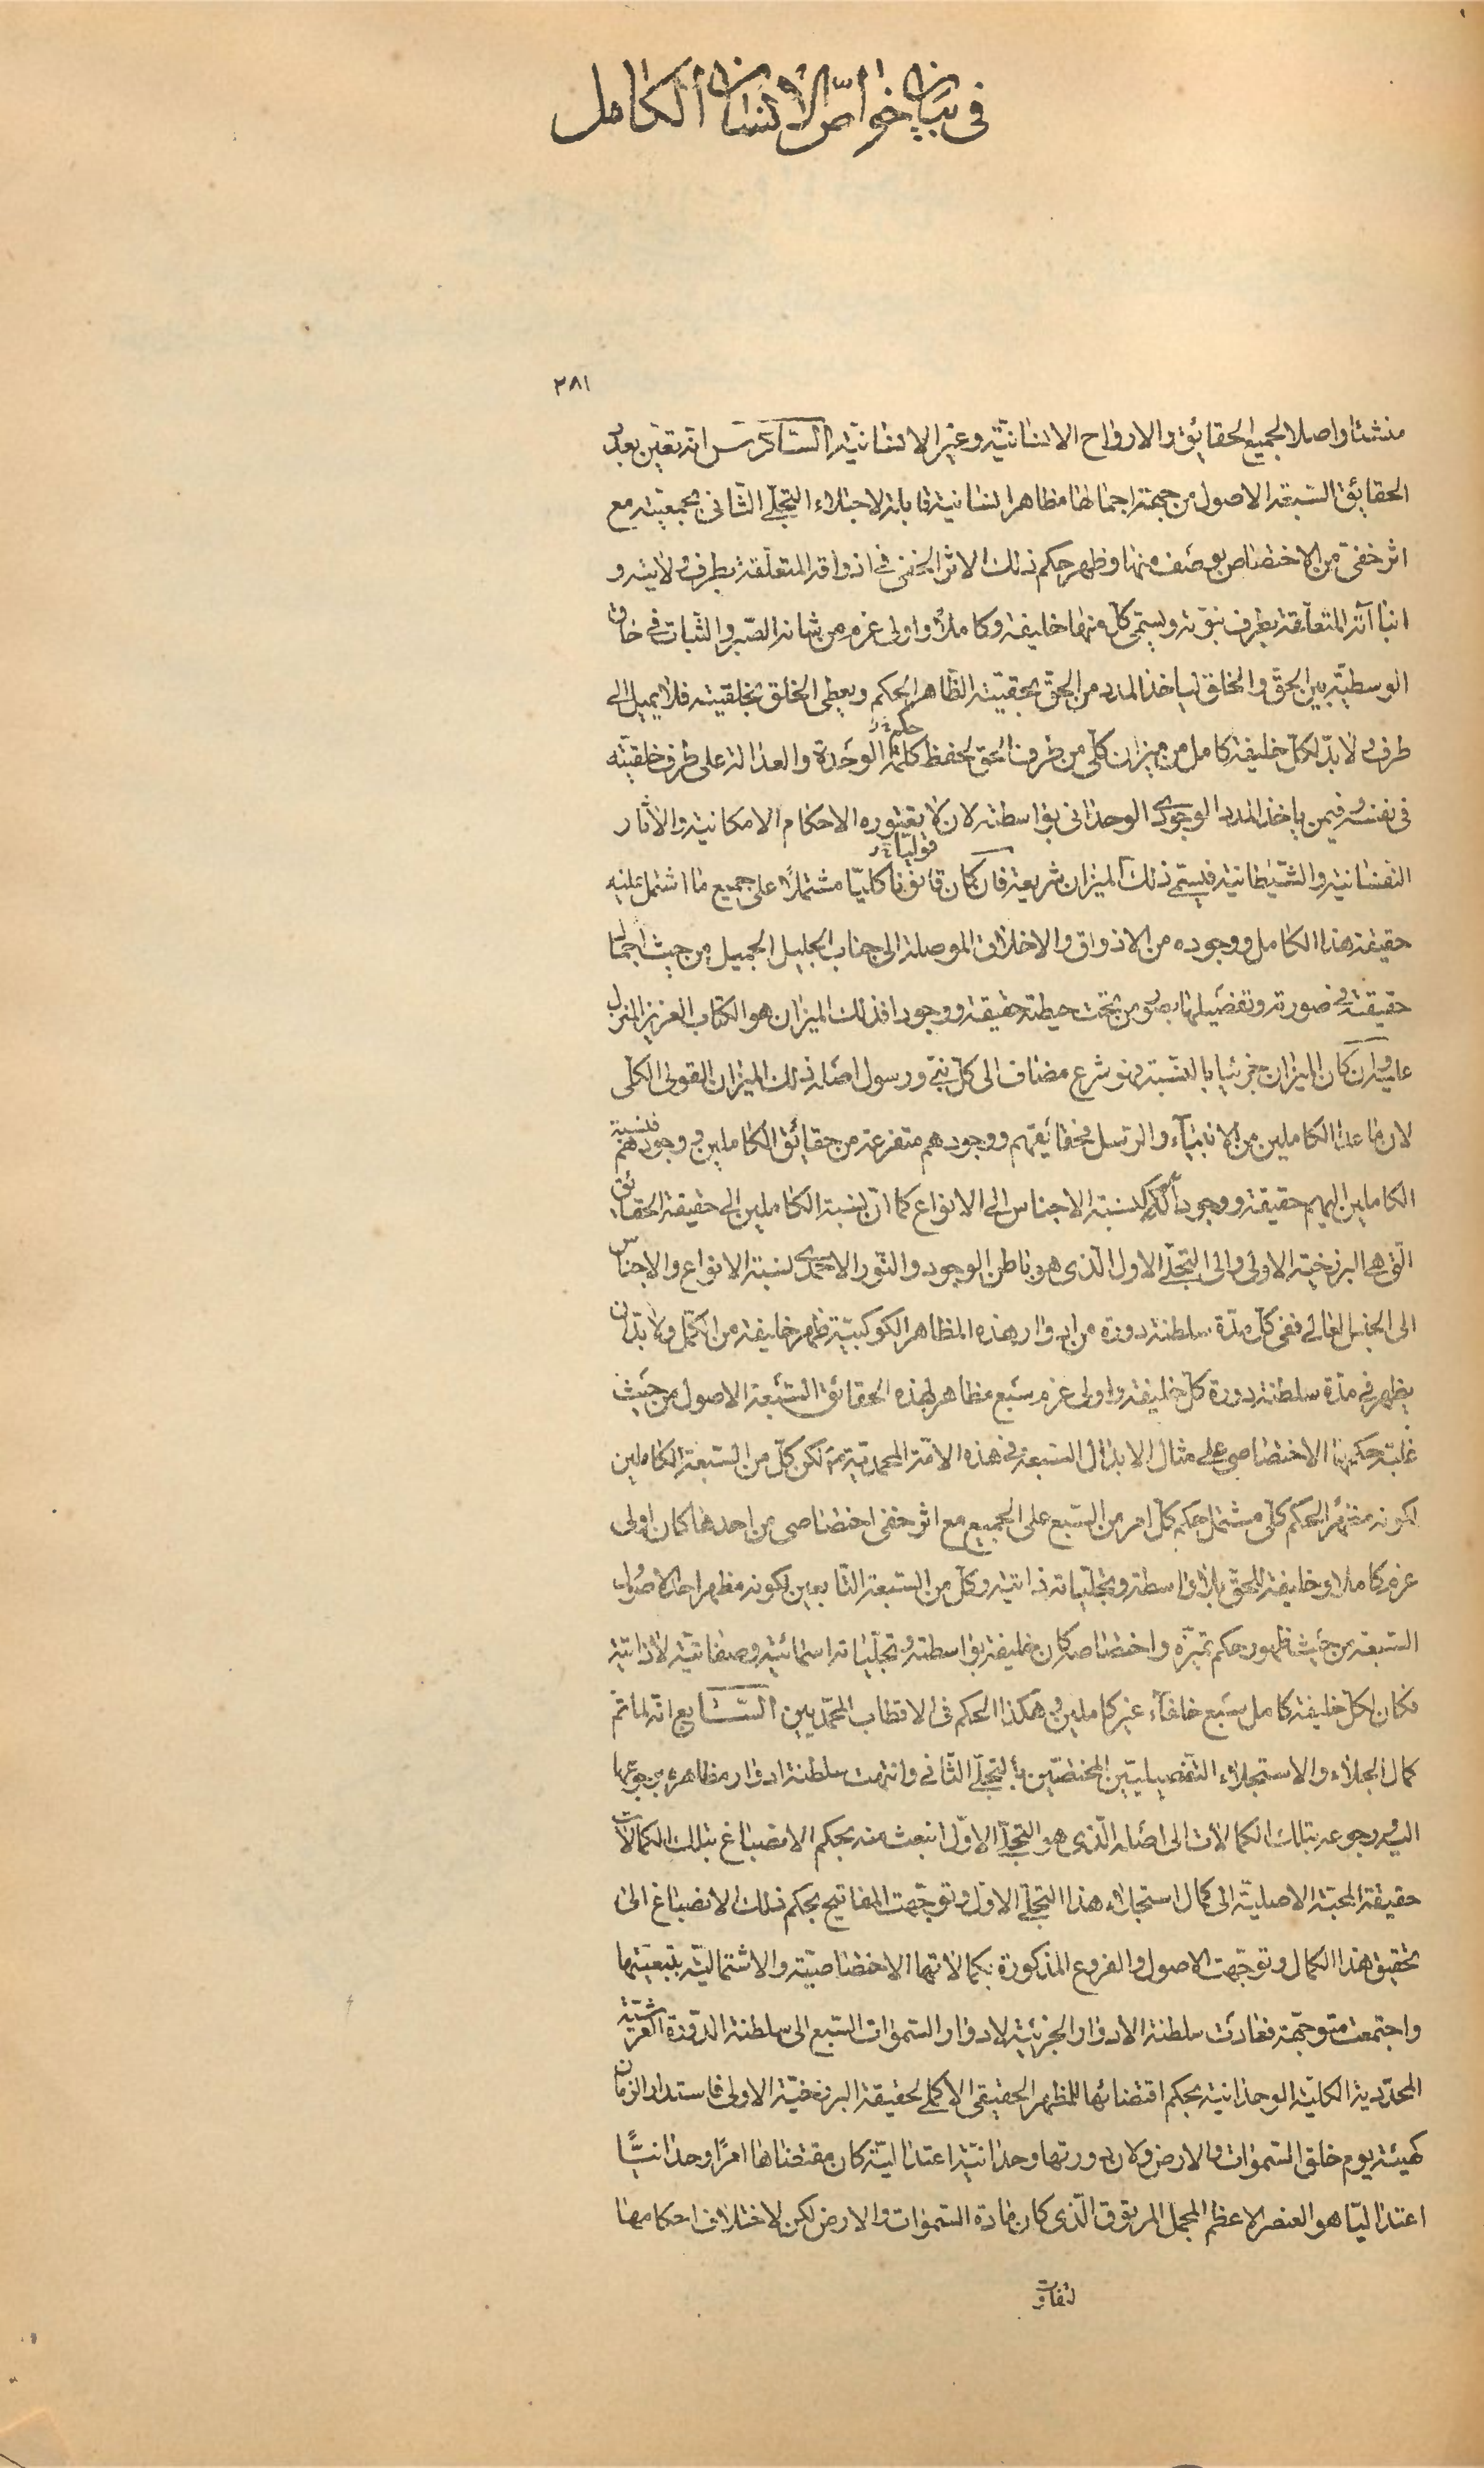 في بيان خواص الانسان الكامل
٢٨١
منشئا واصلا لجميع الحقايق والارواح الانسانية وغير الانسانية السادس انه تعين بعد
الحقائق السبعة الاصول من جهة اجمالها مظاهر انسانية قابلة لاجتلاء التجلي الثاني بجمعيته مع
اثر خفي من الاختصاص بوصف منها وظهر حكم ذلك الاثر الخفي في اذواقه المتعلقة بطرف ولايته و
انباآته المتعلقة بطرف نبوته ويسمى كل منها خليفة وكاملا واولى عزم من شانه الصبر والثبات في حاق
الوسطية بين الحق والخلق لياخذ المدد من الحق بحقيته الظاهر الحكم ويعطى الخلق بخلقيته فلا يميل الى
طرف ولا بد لكل خليفة كامل من ميزان كلي من طرف الحق لحفظ حكم كلمة الوحدة والعدالة على طرف خلقيته
في نفسه وفيمن ياخذ المدد الوجودي الوحداني بواسطته لان لا يعتوره الاحكام الامكانية والاثار
النفسانية والشيطانية فيسمى ذلك الميزان شريعة فان كان قانونا قوليا كليا مشتملا على جميع ما اشتمل عليه
حقيقة هذا الكامل ووجوده من الاذواق والاخلاق الموصلة الى جناب الجليل الجميل من حيث اجمال
حقيقته في صورته وتفصيلها بصور من تحت حيطته حقيقة ووجودا فذلك الميزان هو الكتاب العزيز المنزل
عليه وان كان الميزان جزئيا بالنسبة فهو شرع مضاف الى كل نبي ورسول اصله ذلك الميزان القولى الكلى
لان ما عدا الكاملين من الانبياء والرسل فحقائقهم ووجودهم متفرعة من حقائق الكاملين ووجودهم فنسبة
الكاملين اليهم حقيقة ووجودا كنسبة الاجناس الى الانواع كما ان نسبة الكاملين الى حقيقة الحقائق
التي هي البرزخية الاولى والى التجلي الاول الذى هو باطن الوجود والنور الاحمدي نسبة الانواع والاجناس
الى الجنس العالي ففي كل مدة سلطنة دورة من ادوار هذه المظاهر الكوكبية ظهر خليفة من الكمل ولا بد ان
يظهر في مدة سلطنة دورة كل خليفة واولى عزم سبع مظاهر لهذه الحقائق السبعة الاصول من حيث
غلبة حكمها الاختصاصي على مثال الابدال السبعة في هذه الامة المحمدية لكن كل من السبعة الكاملين
لكونه مظهر الحكم كلي مشتمل حكم كل امر من السبع على الجميع مع اثر خفي اختصاصي من احدها كان اولى
عزم كاملا وخليفة للحق بلا واسطة وتجلياته ذاتية وكل من السبعة التابعين لكونه مظهر احد الاصول
السبعة من حيث ظهور حكم تميزه واختصاصه كان خليفة بواسطة وتجلياته اسمائية وصفاتية لا ذاتية
فكان لكل خليفة كامل سبع خلفاء غير كاملين وهكذا الحكم في الاقطاب المحمديين السابع انه لما تم
كمال الجلاء والاستجلاء التفصيليين المختصين بالتجلي الثاني وانتهت سلطنة ادوار مظاهره برجوعها
اليه ورجوعه بتلك الكمالات الى اصله الذى هو التجلي الاول انبعث منه بحكم الانصباغ بتلك الكمالات
حقيقة المحبة الاصلية الى كمال استجلاء هذا التجلي الاول وتوجهت المفاتيح بحكم ذلك الانصباغ الى
تحقيق هذا الكمال وتوجهت الاصول والفروع المذكورة بكمالاتها الاختصاصية والاشتمالية بتبعيتها
واجتمعت متوجهة فعادت سلطنة الادوار الجزئية لادوار السموات السبع الى سلطنة الدورة العرشية
المحددية الكلية الوحدانية بحكم اقتضائها للمظهر الحقيقي الاكملي لحقيقة البرزخية الاولى فاستدار الزمان
كهيئة يوم خلق السموات والارض ولان دورتها وحدانية اعتدالية كان مقتضاها امرا وحدانيا
اعتداليا هو العنصر الاعظم المجمل المرتوق الذى كان مادة السموات والارض لكن لاختلاف احكامها
لتفاوت